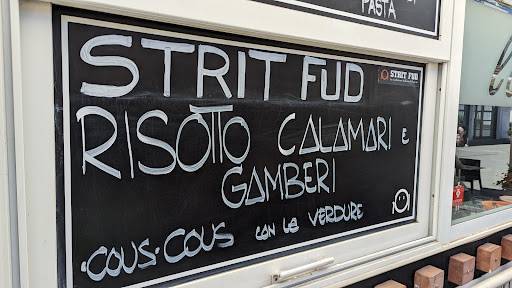 PASTA
STRIT FUD
STRIT FUD
RISOTTO CALAMARI E
GAMBERI
·COUS·COUS con le VERDURE